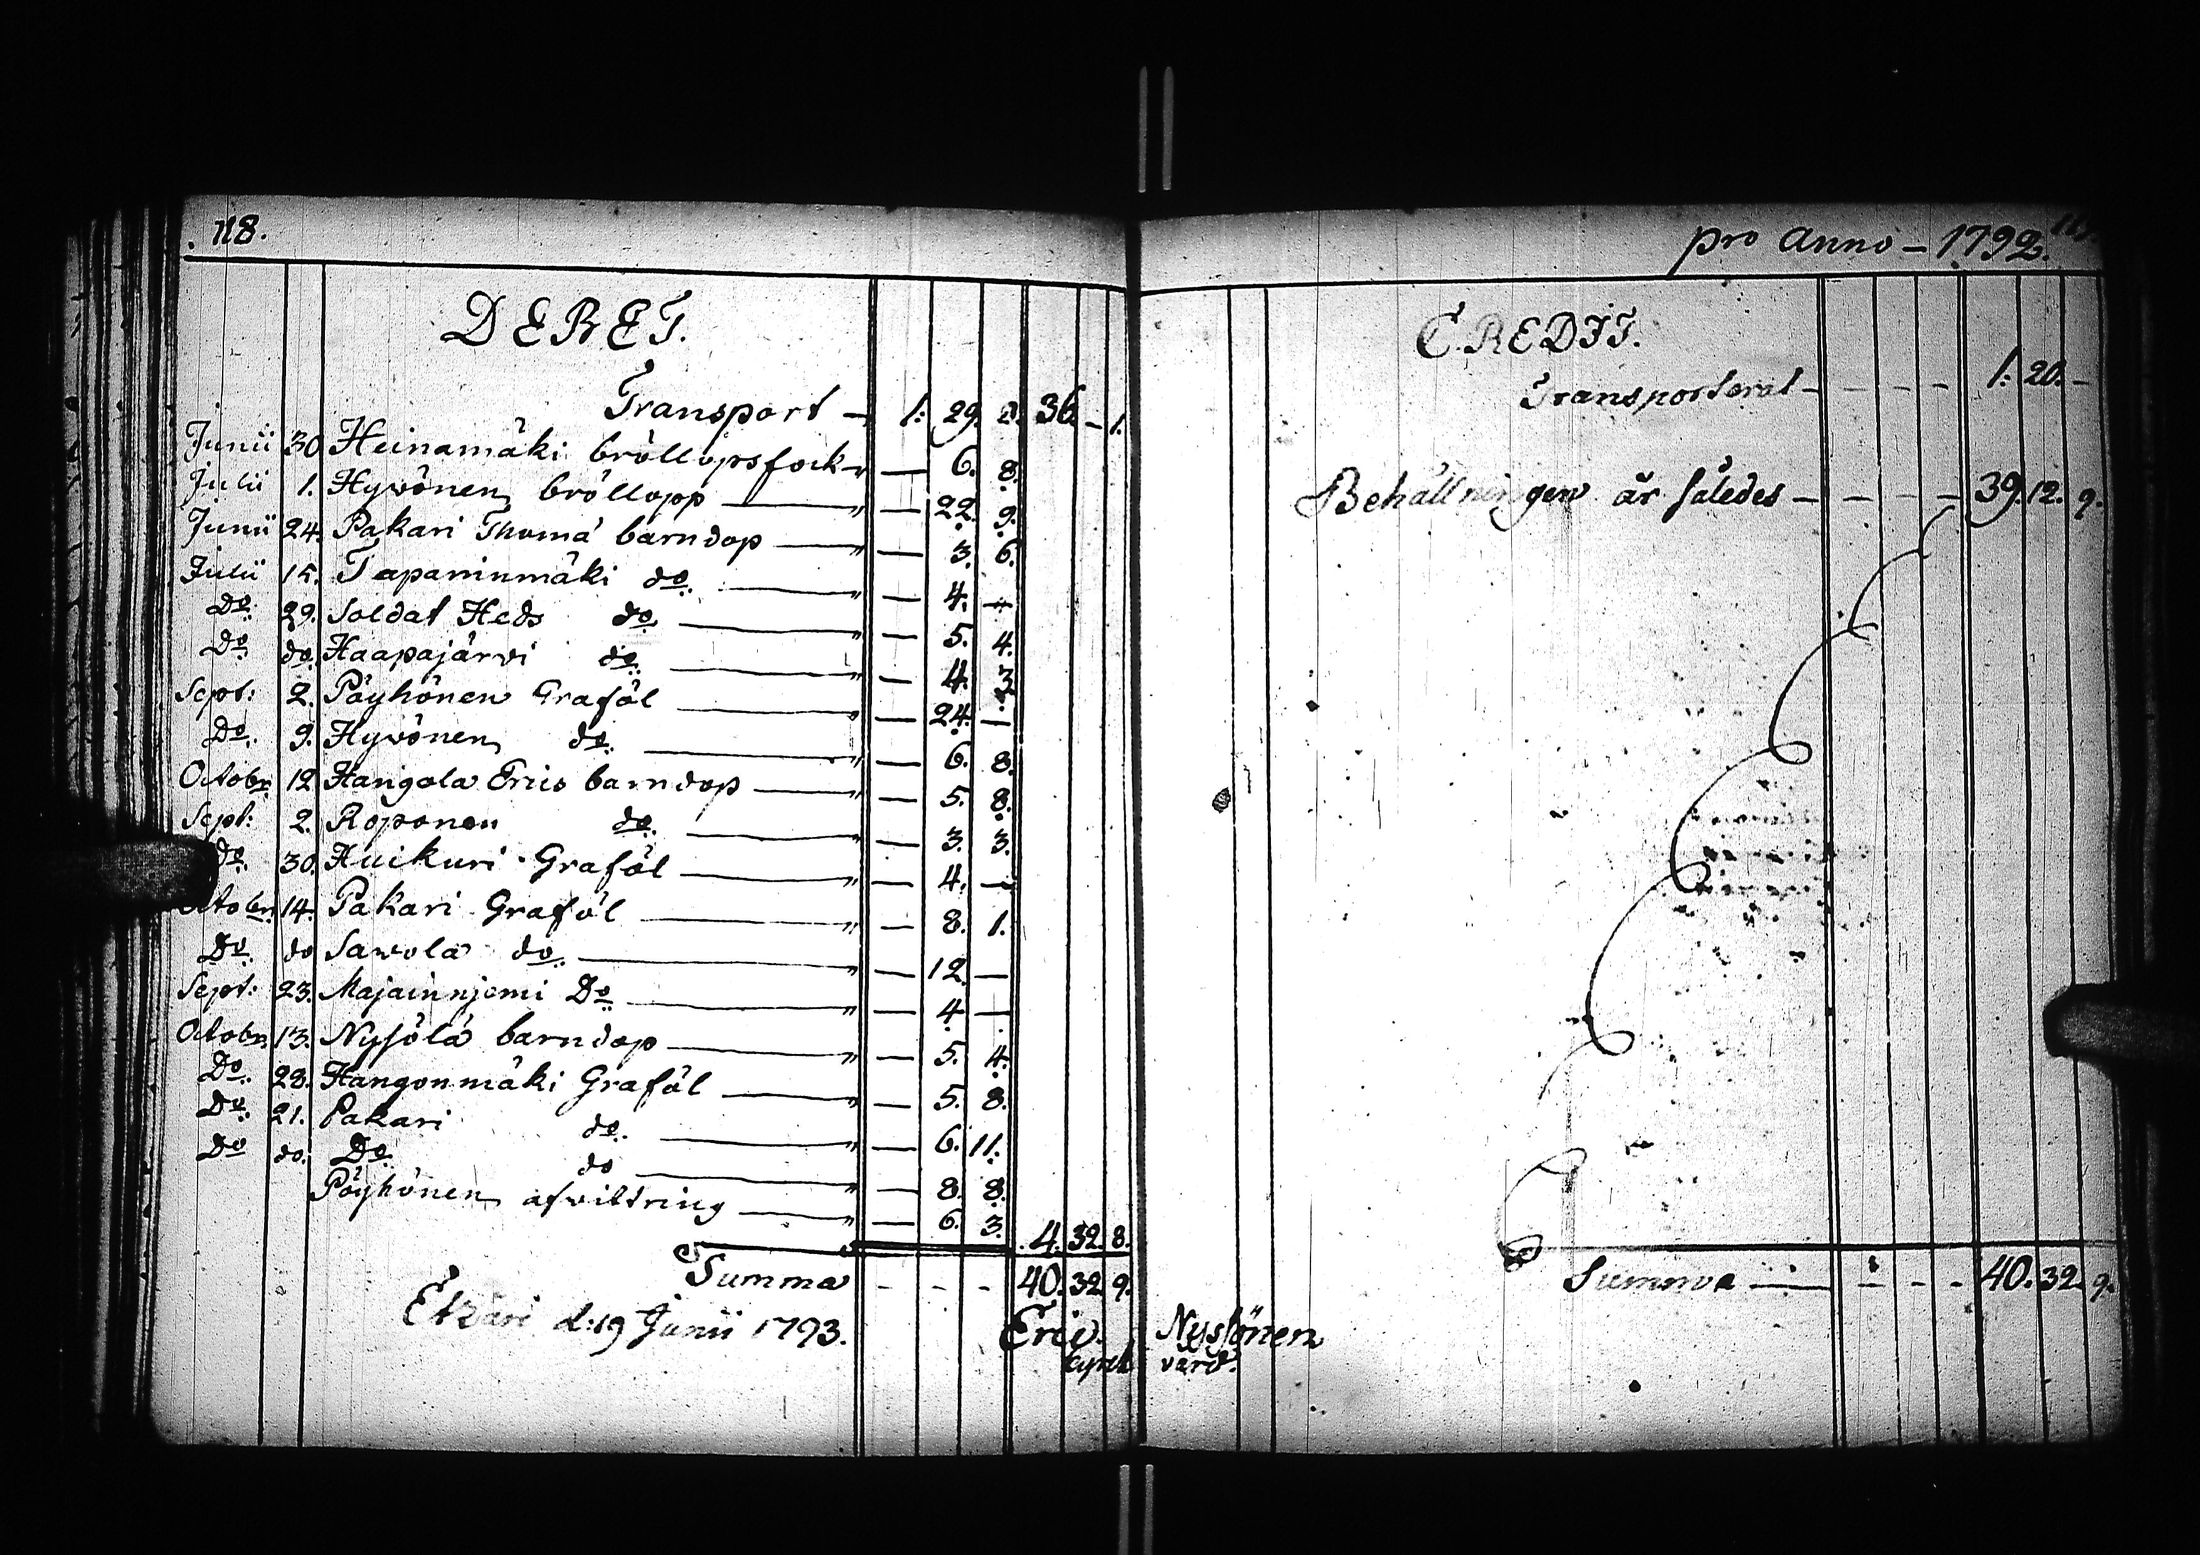 118.
DEBET.
Transport — 1: 29. 2. 36. – 1.
Junii 30 Heinamäki bröllopsfock „ — 6. 8.
Julii 1. Hyvönen bröllopp — „ — 22. 9.
Junii 24. Pakari Thoma barndop — „ — 3. 6.
Julii 15. Tapaninmäki do — „ — 4. —
Do 29. Soldat Heds do — „ — 5. 4.
Do do. Haapajärvi do — „ — 4. 3.
Sept: 2. Pöyhönen Graföl — „ — 24. —
Do. 9. Hyvönen do — „ — 6. 8.
Octobr. 12 Hangola Erics barndop — „ — 5. 8.
Sept: 2. Roponen do. — „ — 3. 3.
do. 30. Huikuri Graföl — „ — 4. —
Octobr. 14. Pakari Graföl — „ — 8. 1.
Do do Savola do — „ — 12 —
Sept: 23. Majainnjemi Do — „ — 4 —
Octobr. 13. Nysölä barndop — „ — 5. 4.
Do. 28. Hangonmäki Graföl — „ — 5. 8.
Do 21. Pakari do. — „ — 6. 11.
Do do. Do do — „ — 8. 8.
Pöyhönen afvittring — „ — 6. 3. 4. 32. 8.
Summa - - - 40. 32. 9.
Etzäri d: 19 Junii 1793.
Eric Nysönen
kyrck värd.
pro Anno – 1792.
CREDIT.
Transporterat – – – – 1: 20. –
Behållningen är således – – – – 39. 12. 9.
Summa — – – – 40. 32. 9.